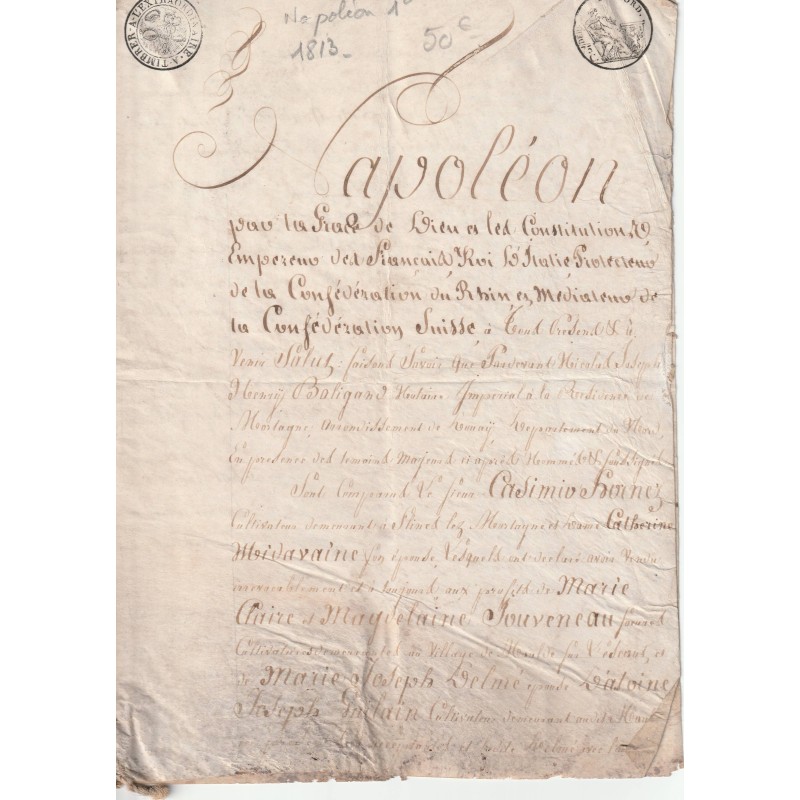 A TIMBRER A L'EXTRAORDINAIRE
ORD.
Napoléon 1er
1813 -
50 €
Napoléon
par la Grace de Dieu et les Constitutions,
Empereur des Français Roi D'Italie Protecteur
de la Confédération du Rhin et Médiateur de
la Confédération Suisse à Tous Présens & à
Venir Salut: faisons Savoir Que Pardevant Nicolas Joseph
Henry Boligand Notaire Impérial à la Résidence de
Mortagne, arrondissement de Douay Département du Nord,
En présence des temoins Majeurs ci après Nommés & soussignés
Sont Comparus Le sieur Casimir Hornez
Cultivateur demeurant à lez Mortagne et Dame Catherine
Midavaine son épouse, Lesquels ont déclaré avoir Vendu
irrévocablement et à toujours aux profits de Marie
Claire et Magdelaine Jouveneau
Cultivatrices demeurantes au Village de et
de Marie Joseph Delmé épouse D'atoine
Joseph Cultivateur demeurant audit